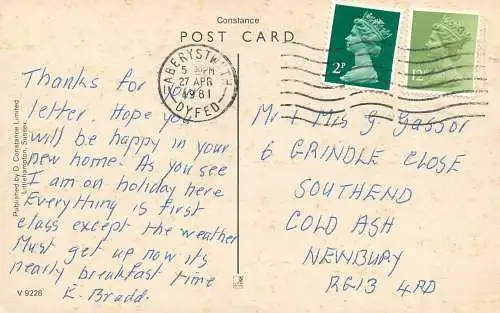 Constance
POST CARD
ABERYSTWYTH
5 PM
27 APR
1981
DYFED
2P
12P
Thanks for your
letter. Hope you
will be happy in your
new home. As you see
I am on holiday here
Everything is first
class except the weather
Must get up now its
nearly breakfast time
E. Bradd.
Mr & Mrs G. Gassor
6 GRINDLE CLOSE
SOUTHEND
COLD ASH
NEWBURY
RG13 4RD
Published by D. Constance Limited
Littlehampton, Sussex.
V 9228